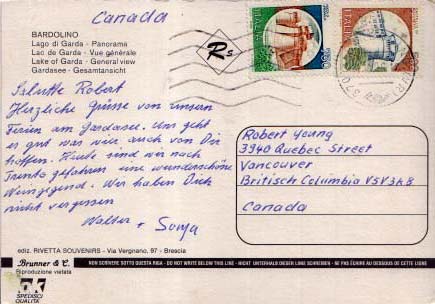 Canada
BARDOLINO
Lago di Garda - Panorama
Lac de Garde - Vue générale
Lake of Garda - General view
Gardasee - Gesamtansicht
Salutte Robert
Herzliche Grüsse von unsern
Ferien am Gardasee. Uns geht
es gut was wir auch von Dir
hoffen. Heute sind wir nach
Trento gefahren eine wunderschöne
Weingegend. Wir haben Dich
nicht vergessen
Walter + Sonja
ediz. RIVETTA SOUVENIRS - Via Vergnano, 97 - Brescia
Rs
ITALIA
ITALIA
Robert Young
3940 Quebec Street
Vancouver
Britisch Columbia V5V3K8
Canada
Brunner & C.
Riproduzione vietata
NON SCRIVERE SOTTO QUESTA RIGA - DO NOT WRITE BELOW THIS LINE - NICHT UNTERHALB DIESER LINIE SCHREIBEN - NE PAS ÉCRIRE AU DESSOUS DE CETTE LIGNE
SPEDISCI
QUALITÀ